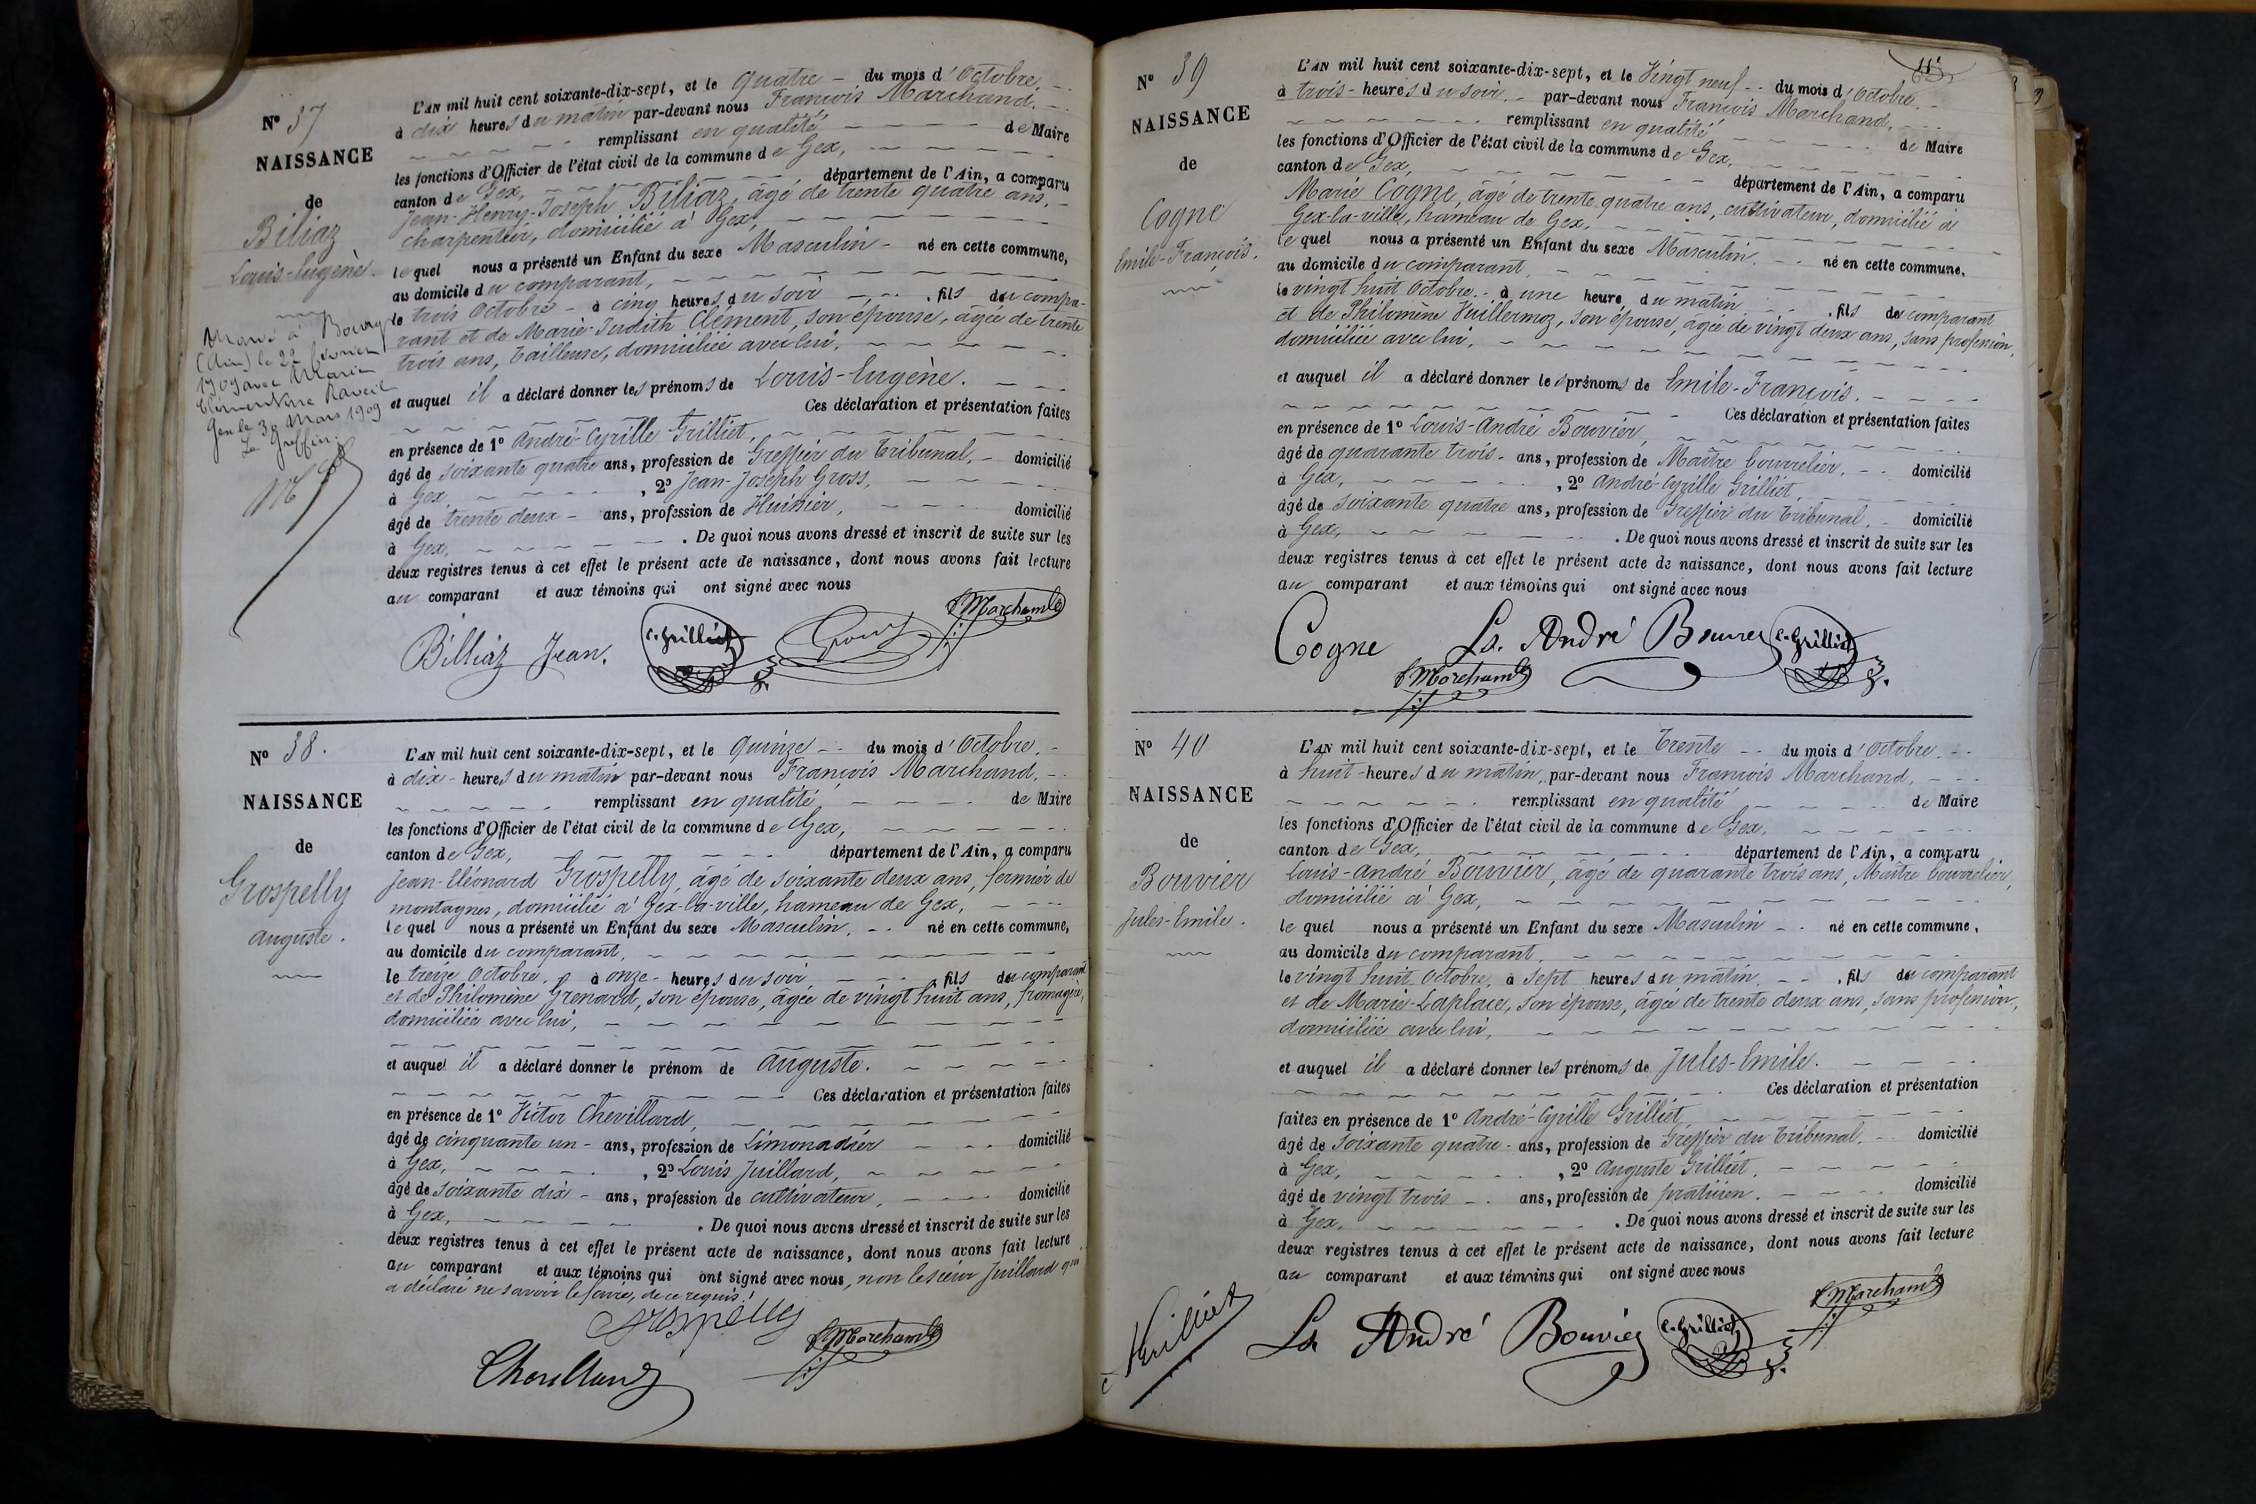 N° 37
NAISSANCE
de
Biliaz
Louis-Eugène.
Marié à Bourg
(Ain) le 22 février
1909 avec Marie
Clémentine Raveil
Gex le 30 Mars 1909
Le Greffier
L'AN mil huit cent soixante-dix-sept, et le quatre - du mois d'Octobre. -
à dix heures du matin par-devant nous François Marchand. -
remplissant en qualité de Maire
les fonctions d'Officier de l'état civil de la commune de Gex,
canton de Gex, département de l'Ain, a comparu
Jean-Henry-Joseph Biliaz, âgé de trente quatre ans, -
charpentier, domicilié à Gex,
lequel nous a présenté un Enfant du sexe Masculin - né en cette commune,
au domicile du comparant,
le trois Octobre - à cinq heures du soir - . fils du compa-
rant et de Marie-Judith Clément, son épouse, âgée de trente
trois ans, tailleuse, domiciliée avec lui,
et auquel il a déclaré donner les prénoms de Louis-Eugène.
Ces déclaration et présentation faites
en présence de 1° André-Cyrille Grilliet,
âgé de soixante quatre ans, profession de Greffier du Tribunal, - domicilié
à Gex, , 2° Jean-Joseph Gross,
âgé de trente deux - ans, profession de Huissier, domicilié
à Gex, . De quoi nous avons dressé et inscrit de suite sur les
deux registres tenus à cet effet le présent acte de naissance, dont nous avons fait lecture
au comparant et aux témoins qui ont signé avec nous
Billiaz Jean. C. Grilliet Gross F Marchand
N° 38.
NAISSANCE
de
Grospelly
Auguste.
L'AN mil huit cent soixante-dix-sept, et le quinze - du mois d'Octobre. -
à dix - heures du matin par-devant nous François Marchand. -
remplissant en qualité de Maire
les fonctions d'Officier de l'état civil de la commune de Gex,
canton de Gex, département de l'Ain, a comparu
Jean-Eléonard Grospelly, âgé de soixante deux ans, fermier de
montagnes, domicilié à Gex-la-ville, hameau de Gex,
lequel nous a présenté un Enfant du sexe Masculin. - né en cette commune,
au domicile du comparant,
le treize Octobre, à onze - heures du soir, . fils du comparant
et de Philomène Grenard, son épouse, âgée de vingt huit ans, fromagère,
domiciliée avec lui,
et auquel il a déclaré donner le prénom de Auguste.
Ces déclaration et présentation faites
en présence de 1° Victor Chevillard,
âgé de cinquante un - ans, profession de Limonadier domicilié
à Gex, , 2° Louis Juillard,
âgé de soixante dix - ans, profession de cultivateur, domicilié
à Gex, . De quoi nous avons dressé et inscrit de suite sur les
deux registres tenus à cet effet le présent acte de naissance, dont nous avons fait lecture
au comparant et aux témoins qui ont signé avec nous, non le sieur Juillard qui
a déclaré ne savoir le faire, de ce requis.
Grospelly F Marchand
Chevillard
N° 39
NAISSANCE
de
Cogne
Emile-François.
L'AN mil huit cent soixante-dix-sept, et le Vingt neuf - du mois d'Octobre. -
à trois - heures du soir. - par-devant nous François Marchand,
remplissant en qualité de Maire
les fonctions d'Officier de l'état civil de la commune de Gex,
canton de Gex, département de l'Ain, a comparu
Marie Cogne, âgé de trente quatre ans, cultivateur, domicilié à
Gex-la-ville, hameau de Gex,
lequel nous a présenté un Enfant du sexe Masculin. - né en cette commune,
au domicile du comparant,
le vingt huit Octobre. - à une heure du matin . fils du comparant
et de Philomène Vuillermoz, son épouse, âgée de vingt deux ans, sans profession,
domiciliée avec lui,
et auquel il a déclaré donner les prénoms de Emile-François.
Ces déclaration et présentation faites
en présence de 1° Louis-André Bouvier,
âgé de quarante trois - ans, profession de Maître bourrelier, domicilié
à Gex, , 2° André-Cyrille Grilliet,
âgé de soixante quatre ans, profession de Greffier du Tribunal, domicilié
à Gex, . De quoi nous avons dressé et inscrit de suite sur les
deux registres tenus à cet effet le présent acte de naissance, dont nous avons fait lecture
au comparant et aux témoins qui ont signé avec nous
Cogne Ls. André Bouvier C. Grilliet
F Marchand
N° 40
NAISSANCE
de
Bouvier
Jules-Emile.
L'AN mil huit cent soixante-dix-sept, et le Trente - du mois d'Octobre. -
à huit - heures du matin, par-devant nous François Marchand,
remplissant en qualité de Maire
les fonctions d'Officier de l'état civil de la commune de Gex,
canton de Gex, département de l'Ain, a comparu
Louis-André Bouvier, âgé de quarante trois ans, Maître bourrelier,
domicilié à Gex,
lequel nous a présenté un Enfant du sexe Masculin - né en cette commune,
au domicile du comparant,
le vingt huit Octobre, à sept heures du matin . fils du comparant
et de Marie Laplace, son épouse, âgée de trente deux ans, sans profession,
domiciliée avec lui,
et auquel il a déclaré donner les prénoms de Jules-Emile.
Ces déclaration et présentation
faites en présence de 1° André-Cyrille Grilliet
âgé de soixante quatre - ans, profession de Greffier du Tribunal, domicilié
à Gex, , 2° Auguste Grilliet,
âgé de vingt trois ans, profession de praticien. domicilié
à Gex, . De quoi nous avons dressé et inscrit de suite sur les
deux registres tenus à cet effet le présent acte de naissance, dont nous avons fait lecture
au comparant et aux témoins qui ont signé avec nous
Grilliet Ls André Bouvier C. Grilliet F Marchand